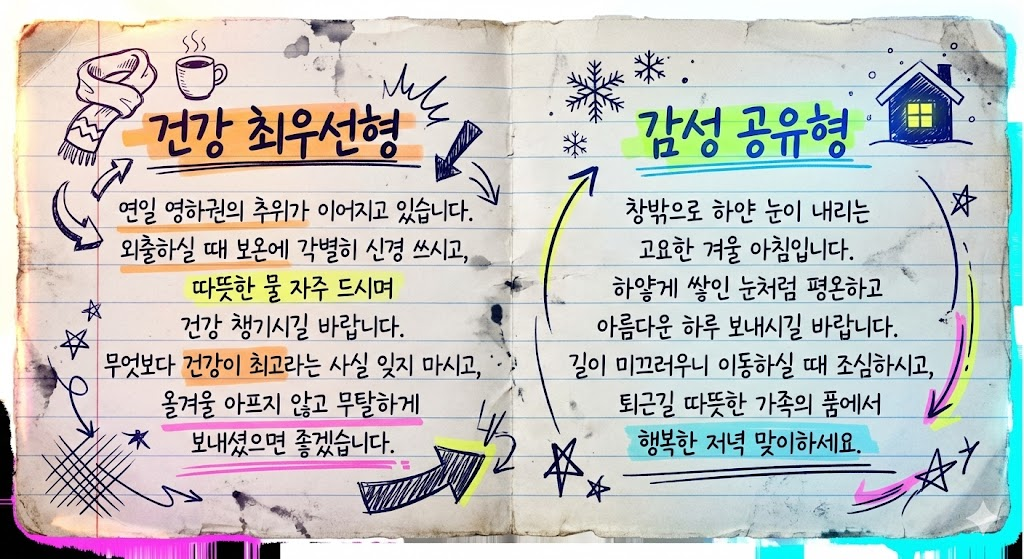 건강 최우선형
연일 영하권의 추위가 이어지고 있습니다.
외출하실 때 보온에 각별히 신경 쓰시고,
따뜻한 물 자주 드시며
건강 챙기시길 바랍니다.
무엇보다 건강이 최고라는 사실 잊지 마시고,
올겨울 아프지 않고 무탈하게
보내셨으면 좋겠습니다.
감성 공유형
창밖으로 하얀 눈이 내리는
고요한 겨울 아침입니다.
하얗게 쌓인 눈처럼 평온하고
아름다운 하루 보내시길 바랍니다.
길이 미끄러우니 이동하실 때 조심하시고,
퇴근길 따뜻한 가족의 품에서
행복한 저녁 맞이하세요.